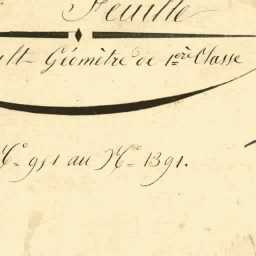 Feuille
Géomètre de 1.ère Classe
N.o 951 au N.o 1391.